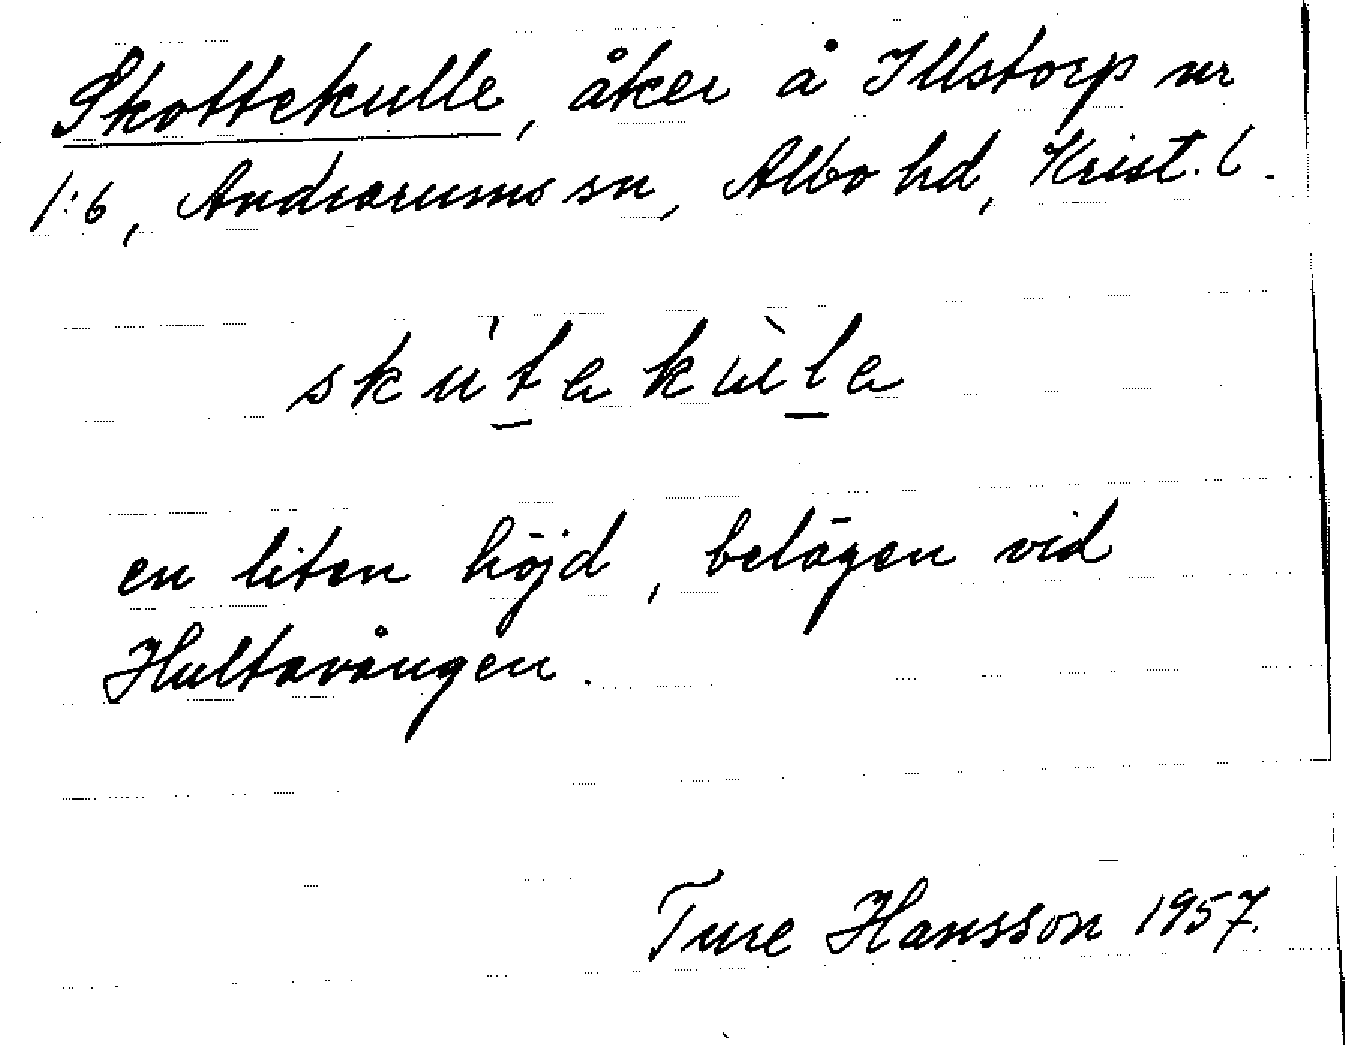 Skottekulle, åker å Illstorp nr
1:6, Andrarums sn, Albo hd, Krist. l.
en liten höjd, belägen vid
Hultavången.
Ture Hansson 1957.